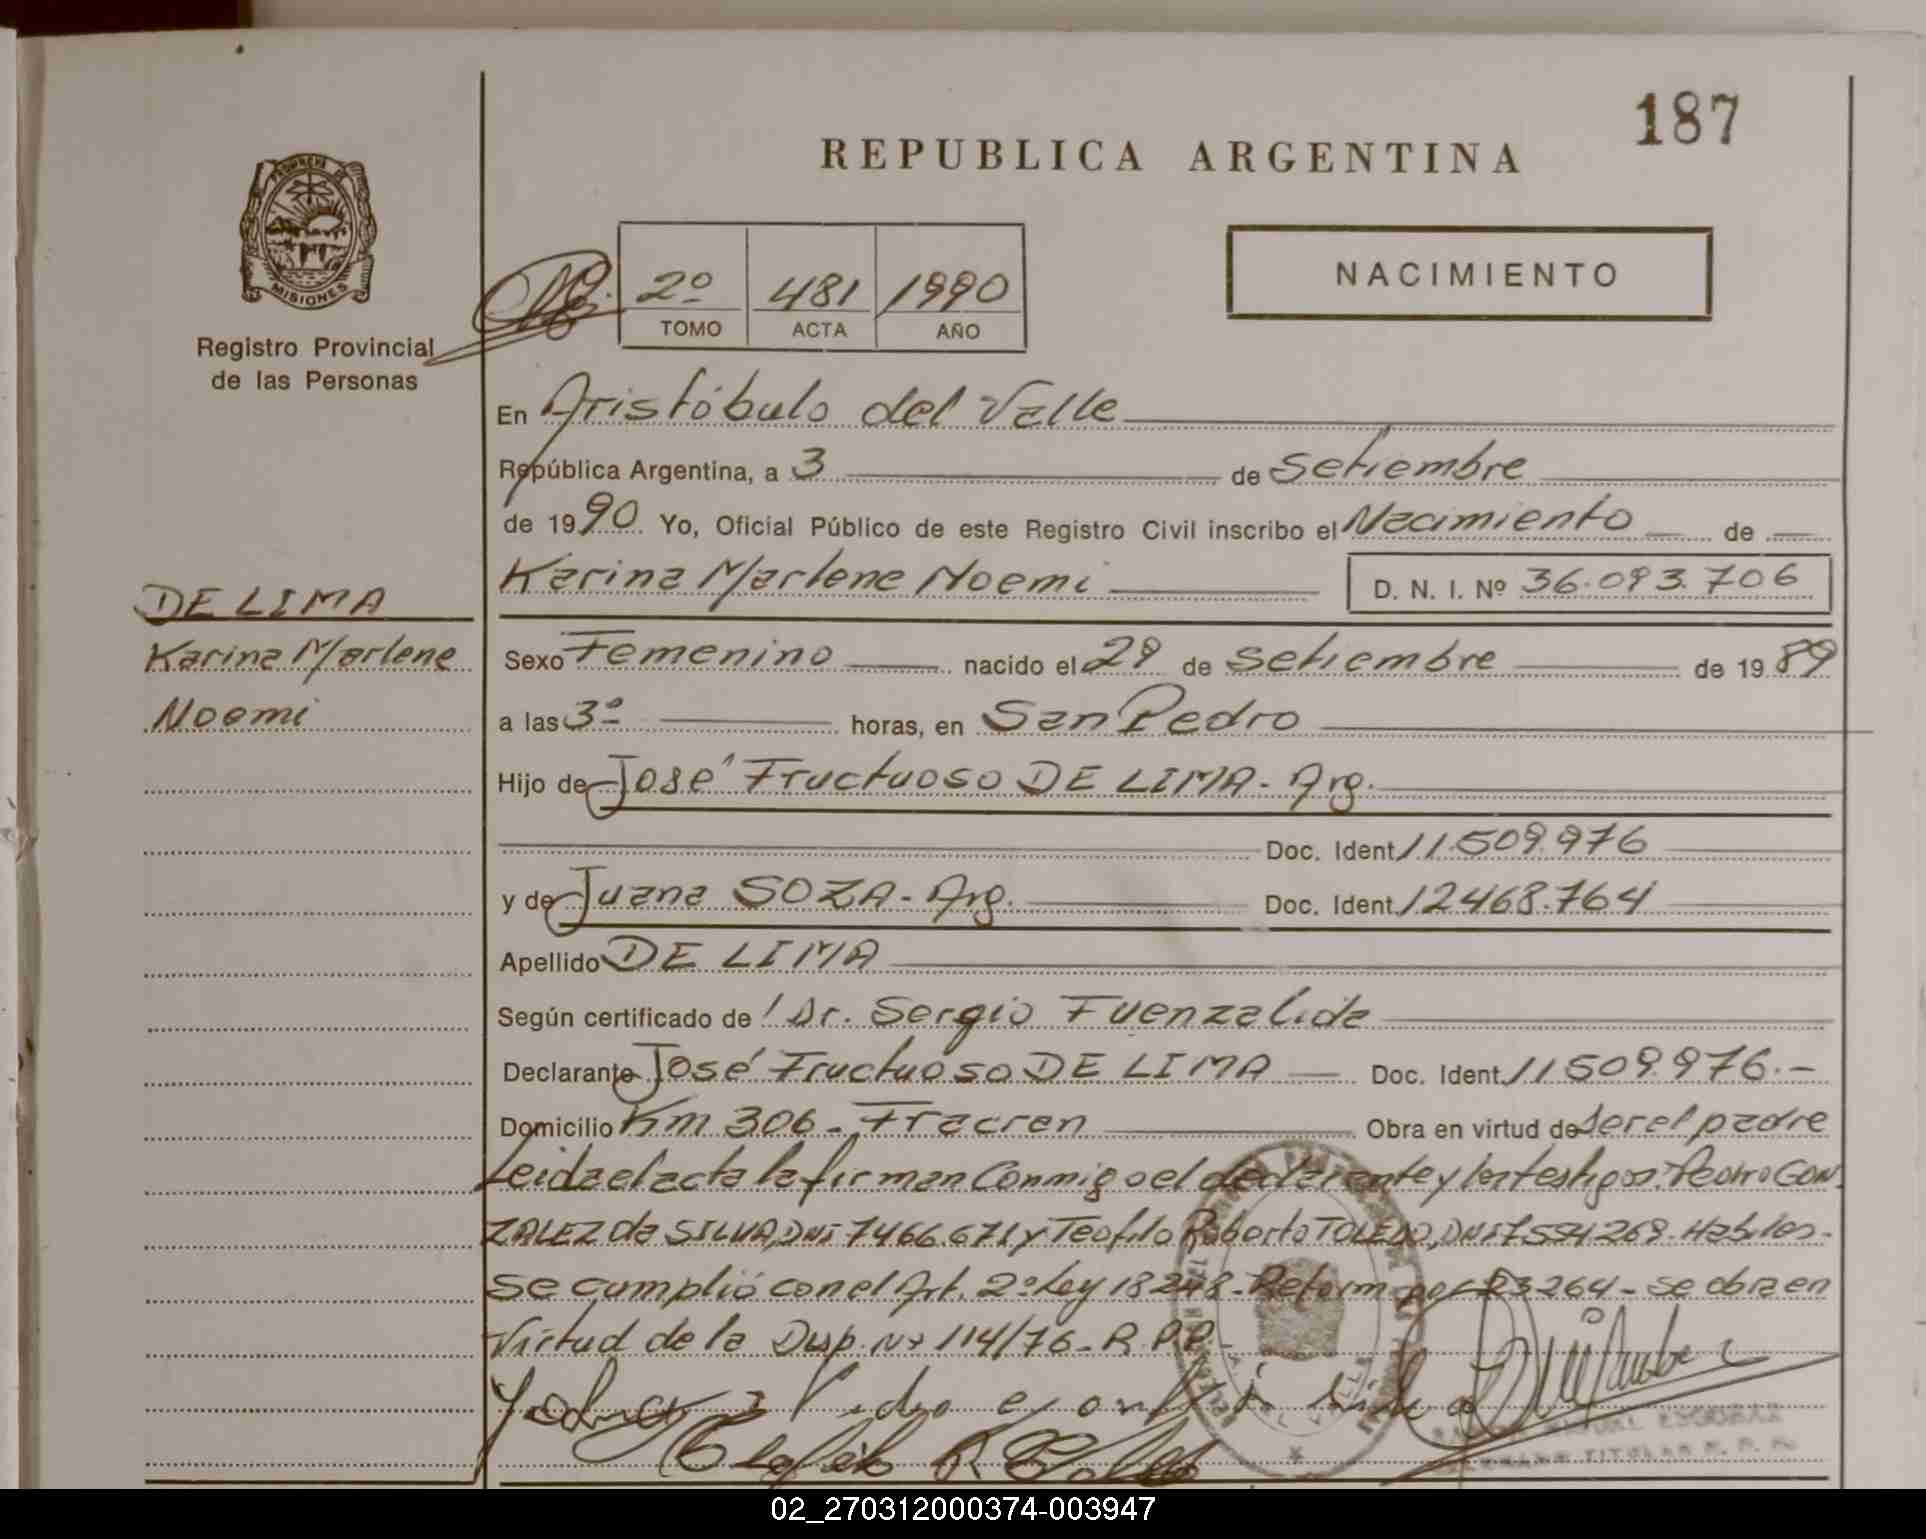 187
REPUBLICA ARGENTINA
PROVINCIA DE
MISIONES
Registro Provincial
de las Personas
2º 481 1990
TOMO ACTA AÑO
NACIMIENTO
En Aristóbulo del Valle
República Argentina, a 3 de Setiembre
de 1990 Yo, Oficial Público de este Registro Civil inscribo el Nacimiento de
Karina Marlene Noemi D. N. I. Nº 36.093.706
DE LIMA
Karina Marlene
Noemi
Sexo Femenino nacido el 29 de Setiembre de 1989
a las 3º horas, en San Pedro
Hijo de José Fructuoso DE LIMA - Arg.
Doc. Ident. 11.509.976
y de Juana SOZA - Arg. Doc. Ident. 12468.764
Apellido DE LIMA
Según certificado de Dr. Sergio Fuenzalida
Declarante José Fructuoso DE LIMA Doc. Ident. 11509.976.-
Domicilio Km 306 - Fracran Obra en virtud de ser el padre
Leida el acta la firman Conmigo el declarante y los testigos: Pedro GON
ZALEZ da SILVA, DNI 7466.671 y Teofilo Roberto TOLEDO, DNI 7.554.269. Habiles.-
Se cumplió con el Art. 2º Ley 18248 - Reform por 23264 - se obra en
Virtud de la Disp. Nº 114/76 - R.P.P.-
02_270312000374-003947